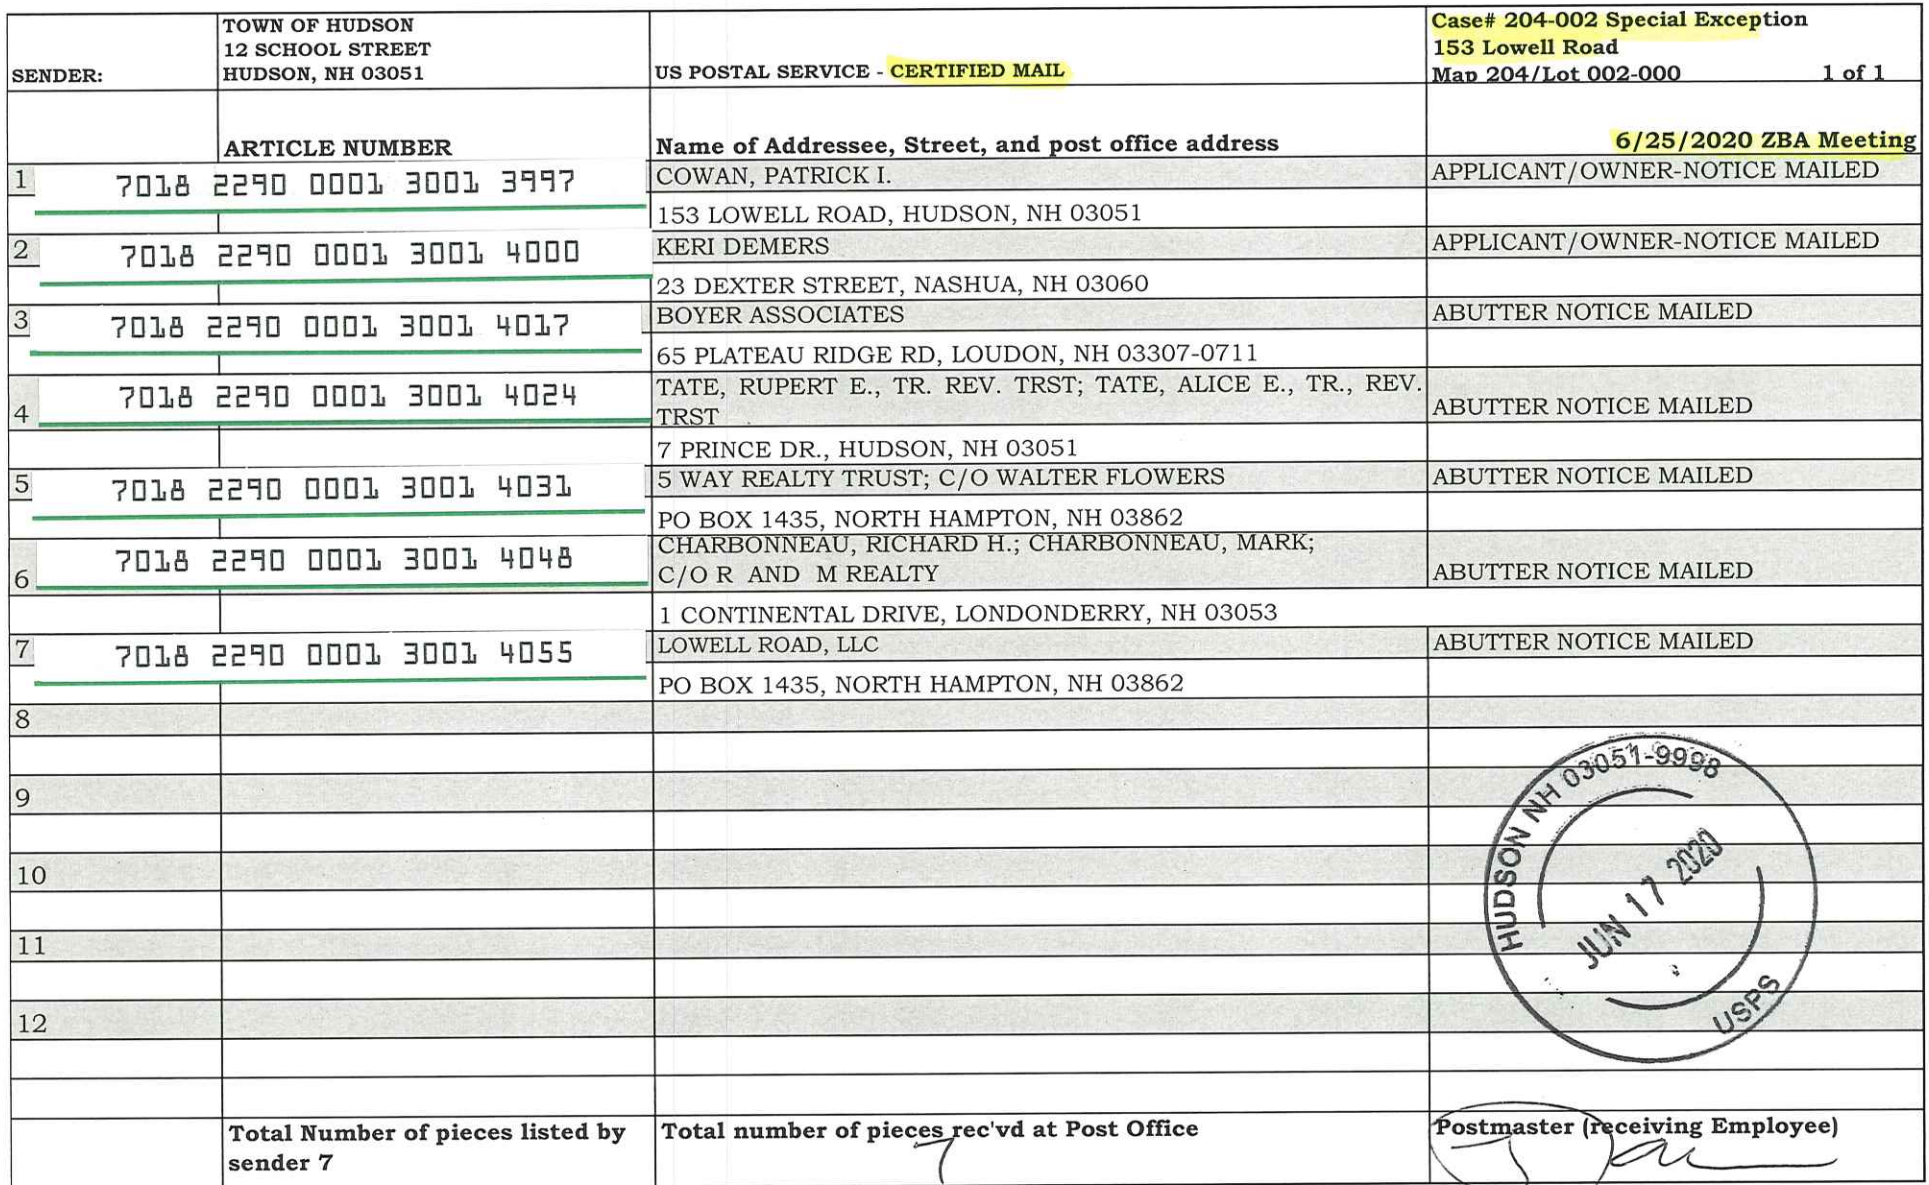 SENDER:
TOWN OF HUDSON
12 SCHOOL STREET
HUDSON, NH 03051
US POSTAL SERVICE - CERTIFIED MAIL
Case# 204-002 Special Exception
153 Lowell Road
Map 204/Lot 002-000 1 of 1
ARTICLE NUMBER
Name of Addressee, Street, and post office address
6/25/2020 ZBA Meeting
1 7018 2290 0001 3001 3997 COWAN, PATRICK I. APPLICANT/OWNER-NOTICE MAILED
153 LOWELL ROAD, HUDSON, NH 03051
2 7018 2290 0001 3001 4000 KERI DEMERS APPLICANT/OWNER-NOTICE MAILED
23 DEXTER STREET, NASHUA, NH 03060
3 7018 2290 0001 3001 4017 BOYER ASSOCIATES ABUTTER NOTICE MAILED
65 PLATEAU RIDGE RD, LOUDON, NH 03307-0711
4 7018 2290 0001 3001 4024 TATE, RUPERT E., TR. REV. TRST; TATE, ALICE E., TR., REV.
TRST ABUTTER NOTICE MAILED
7 PRINCE DR., HUDSON, NH 03051
5 7018 2290 0001 3001 4031 5 WAY REALTY TRUST; C/O WALTER FLOWERS ABUTTER NOTICE MAILED
PO BOX 1435, NORTH HAMPTON, NH 03862
6 7018 2290 0001 3001 4048 CHARBONNEAU, RICHARD H.; CHARBONNEAU, MARK;
C/O R AND M REALTY ABUTTER NOTICE MAILED
1 CONTINENTAL DRIVE, LONDONDERRY, NH 03053
7 7018 2290 0001 3001 4055 LOWELL ROAD, LLC ABUTTER NOTICE MAILED
PO BOX 1435, NORTH HAMPTON, NH 03862
8
9
10
11
12
HUDSON NH 03051-9998
JUN 17 2020
USPS
Total Number of pieces listed by
sender 7
Total number of pieces rec'vd at Post Office
7
Postmaster (receiving Employee)